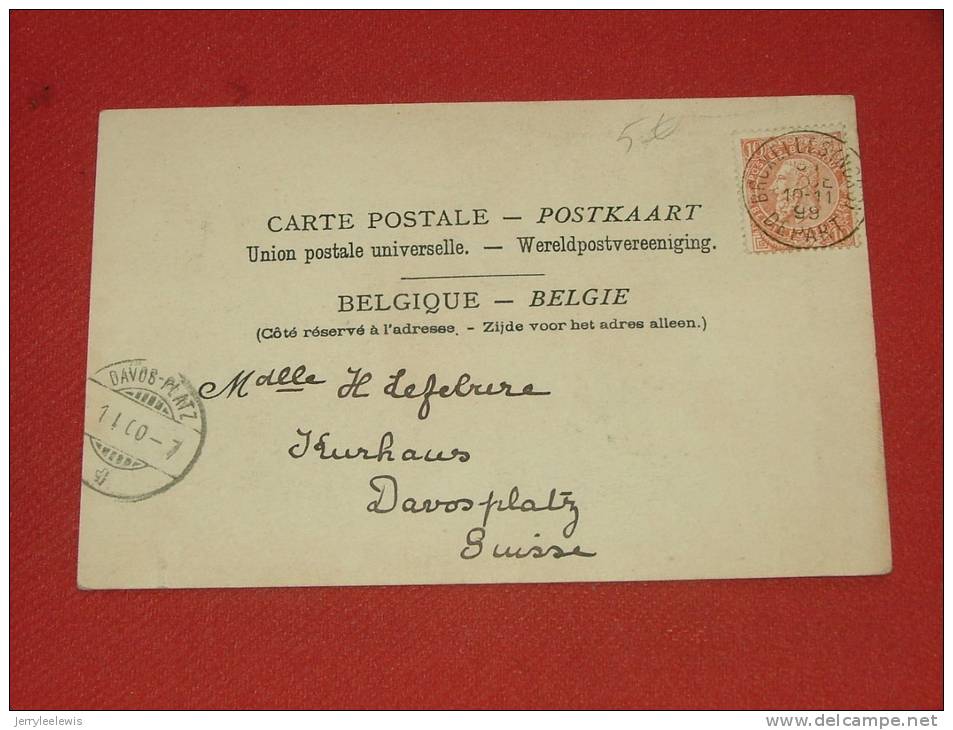 5 €
10
BRUXELLES
10-11
99
DEPART
CARTE POSTALE — POSTKAART
Union postale universelle. — Wereldpostvereeniging.
BELGIQUE — BELGIE
(Côté réservé à l'adresse. - Zijde voor het adres alleen.)
DAVOS-PLATZ
Mdlle H Lefebvre
Kurhaus
Davosplatz
Suisse
jerryleelewis
www.delcampe.net